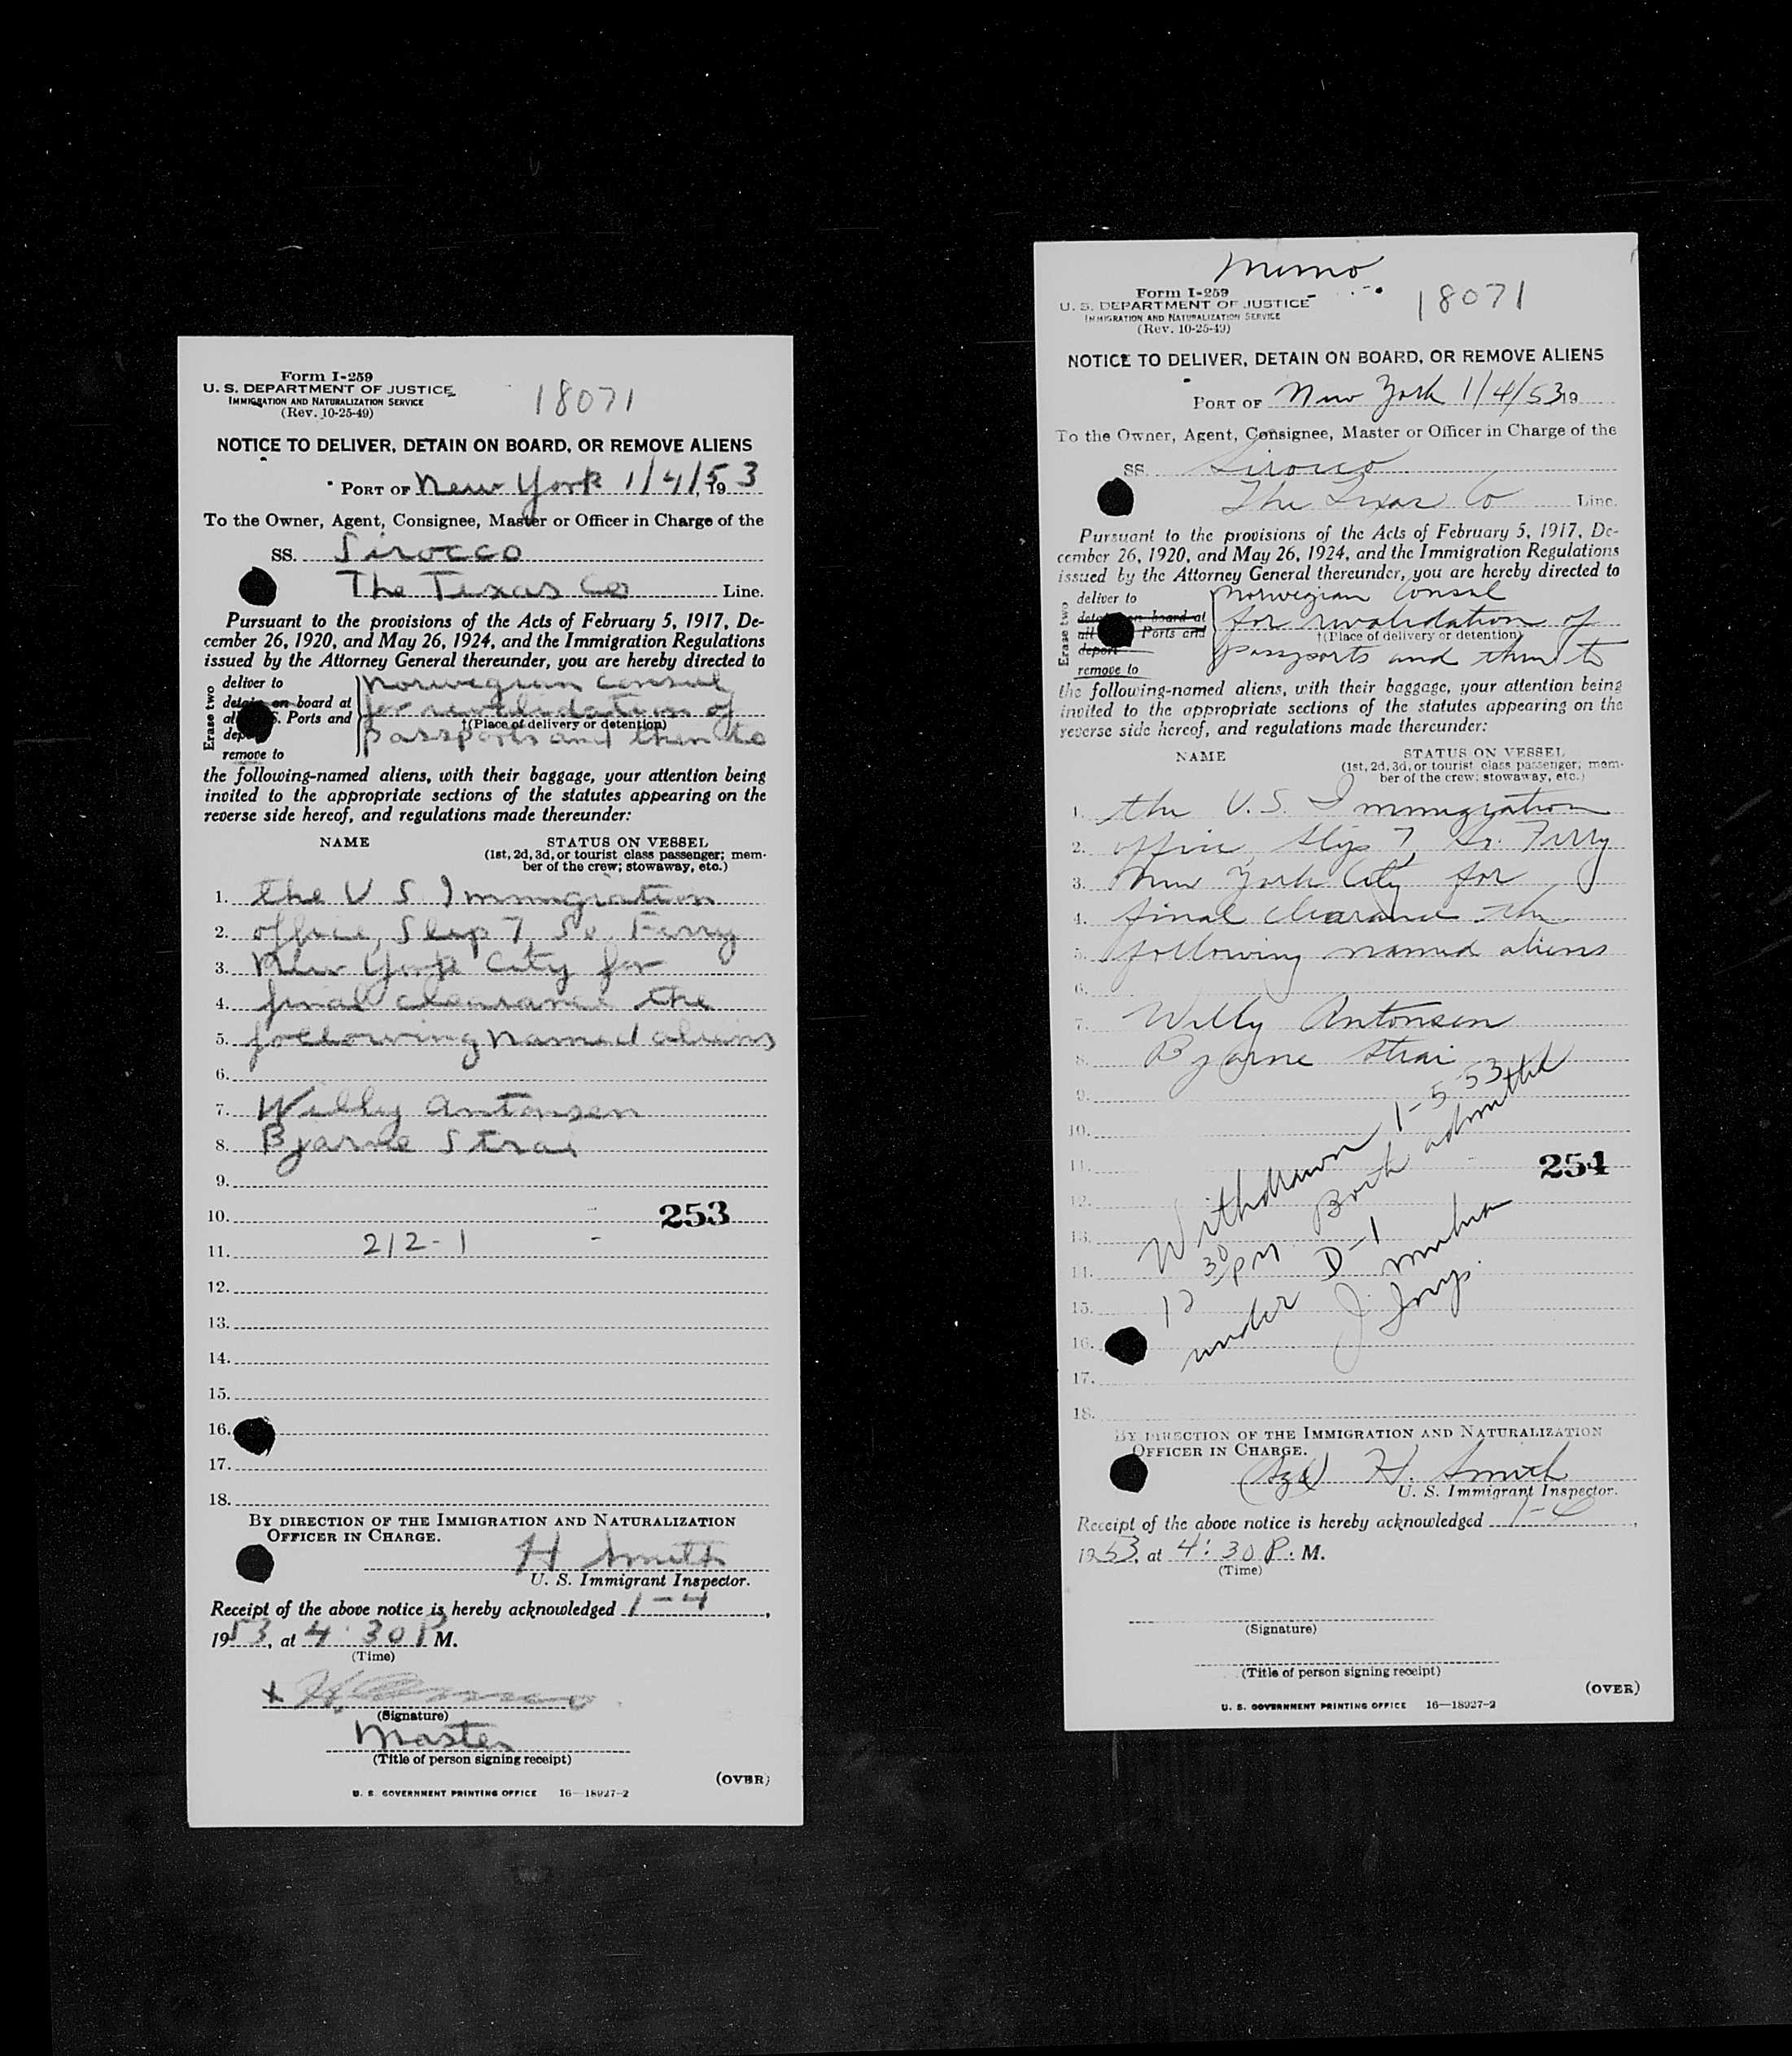 Form I-259
U. S. DEPARTMENT OF JUSTICE
IMMIGRATION AND NATURALIZATION SERVICE
(Rev. 10-25-49)
18071
NOTICE TO DELIVER, DETAIN ON BOARD, OR REMOVE ALIENS
PORT OF New York 1/4/, 1953
To the Owner, Agent, Consignee, Master or Officer in Charge of the
SS. Sirocco
The Texas Co Line.
Pursuant to the provisions of the Acts of February 5, 1917, De-
cember 26, 1920, and May 26, 1924, and the Immigration Regulations
issued by the Attorney General thereunder, you are hereby directed to
Erase two
deliver to
detain on board at
S. Ports and
remove to
Norwegian Consul
for revalidation of
†(Place of delivery or detention)
passports and then to
the following-named aliens, with their baggage, your attention being
invited to the appropriate sections of the statutes appearing on the
reverse side hereof, and regulations made thereunder:
NAME STATUS ON VESSEL
(1st, 2d, 3d, or tourist class passenger; mem-
ber of the crew; stowaway, etc.)
1. the U S Immigration
2. office, Slip 7, So. Ferry
3. New York City for
4. final clearance the
5. following named aliens
6.
7. Willy Antonsen
8. Bjarne Strai
9.
10. 253
11. 212-1 -
12.
13.
14.
15.
16.
17.
18.
BY DIRECTION OF THE IMMIGRATION AND NATURALIZATION
OFFICER IN CHARGE.
H Smith
U. S. Immigrant Inspector.
Receipt of the above notice is hereby acknowledged 1-4,
1953, at 4:30 P M.
(Time)
x
(Signature)
Master
(Title of person signing receipt)
(OVER)
U. S. GOVERNMENT PRINTING OFFICE 16—18927-2
Memo
Form I-259
U. S. DEPARTMENT OF JUSTICE
IMMIGRATION AND NATURALIZATION SERVICE
(Rev. 10-25-49)
18071
NOTICE TO DELIVER, DETAIN ON BOARD, OR REMOVE ALIENS
PORT OF New York 1/4/53 19
To the Owner, Agent, Consignee, Master or Officer in Charge of the
SS. Sirocco
The Texas Co Line.
Pursuant to the provisions of the Acts of February 5, 1917, De-
cember 26, 1920, and May 26, 1924, and the Immigration Regulations
issued by the Attorney General thereunder, you are hereby directed to
Erase two
deliver to
on board at
all Ports and
deport
remove to
Norwegian Consul
for revalidation of
†(Place of delivery or detention)
passports and then to
the following-named aliens, with their baggage, your attention being
invited to the appropriate sections of the statutes appearing on the
reverse side hereof, and regulations made thereunder:
NAME STATUS ON VESSEL
(1st, 2d, 3d, or tourist class passenger; mem-
ber of the crew; stowaway, etc.)
1. the U.S. Immigration
2. office, Slip 7, So. Ferry
3. New York City for
4. final clearance the
5. following named aliens
6.
7. Willy Antonsen
8. Bjarne Strai
9.
10.
11. 254
12.
13.
14.
15.
16.
17.
18.
Withdrawn 1-5-53
12 30 PM Both admitted
under D-1
BY DIRECTION OF THE IMMIGRATION AND NATURALIZATION
OFFICER IN CHARGE.
(Sgd) H. Smith
U. S. Immigrant Inspector.
Receipt of the above notice is hereby acknowledged 1-4,
1953, at 4:30 P. M.
(Time)
(Signature)
(Title of person signing receipt)
(OVER)
U. S. GOVERNMENT PRINTING OFFICE 16—18927-2